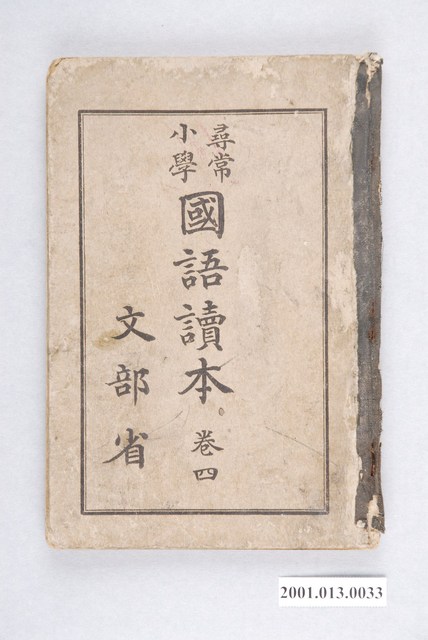 尋常
小學
國語讀本 卷四
文部省
2001.013.0033